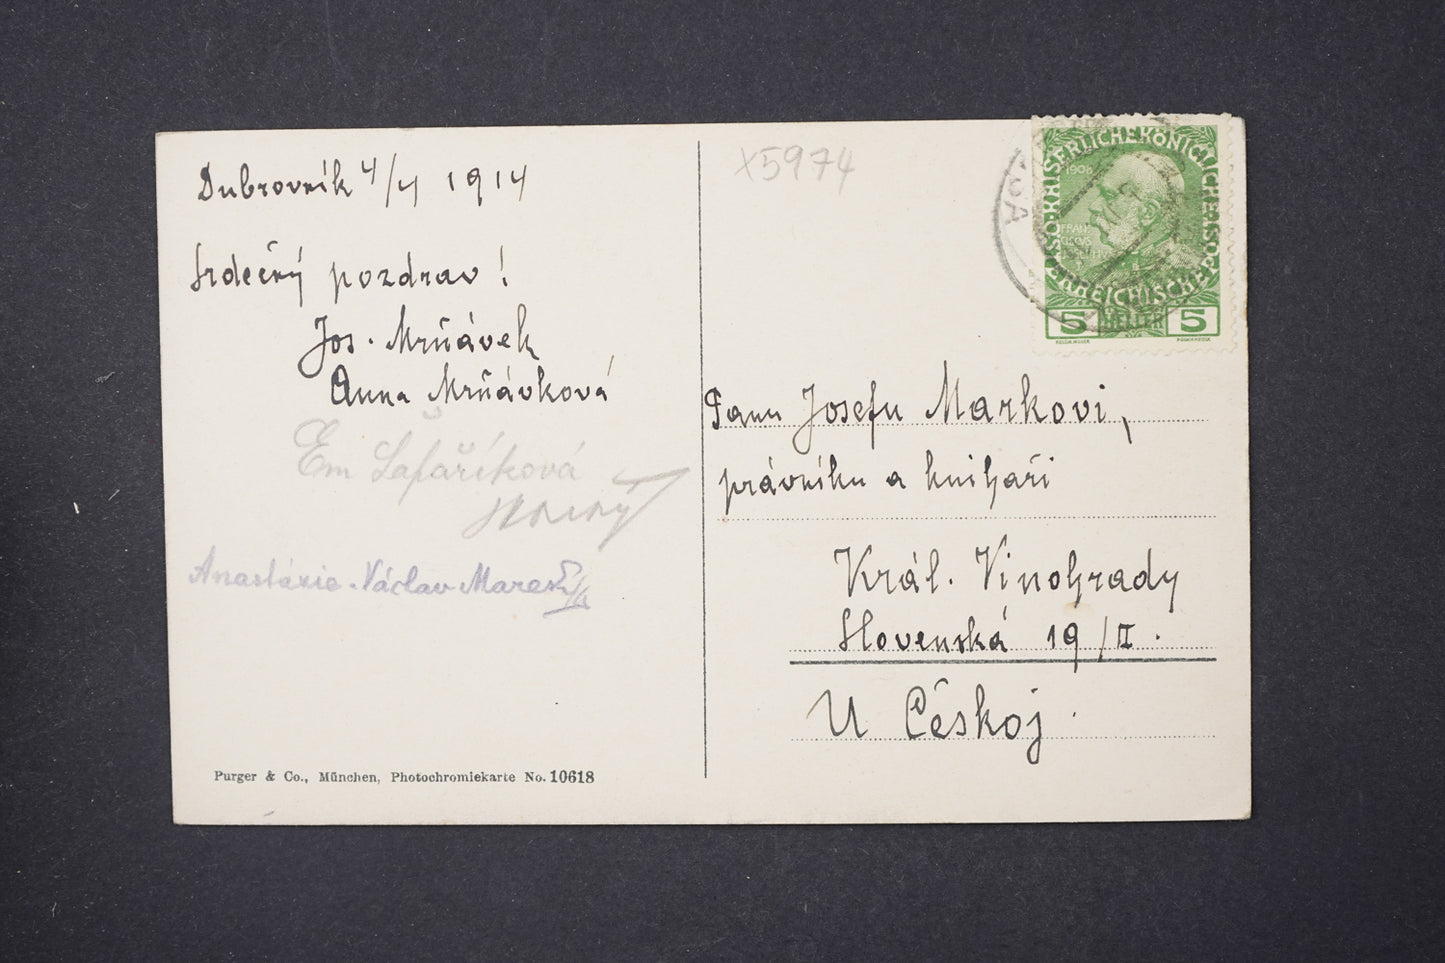 Dubrovník 4/4 1914
Srdečný pozdrav!
Jos. Mrňávek
Anna Mrňávková
Em Šafaříková
Anastázie. Václav
Purger & Co., München, Photochromiekarte No. 10618
X5974
KAISERLICHE KÖNIGLICHE ÖSTERREICHISCHE POST
1908
5 HELLER 5
Panu Josefu Markovi,
právníku a knihaři
Král. Vinohrady
Slovenská 19/II.
U Čéskoj.